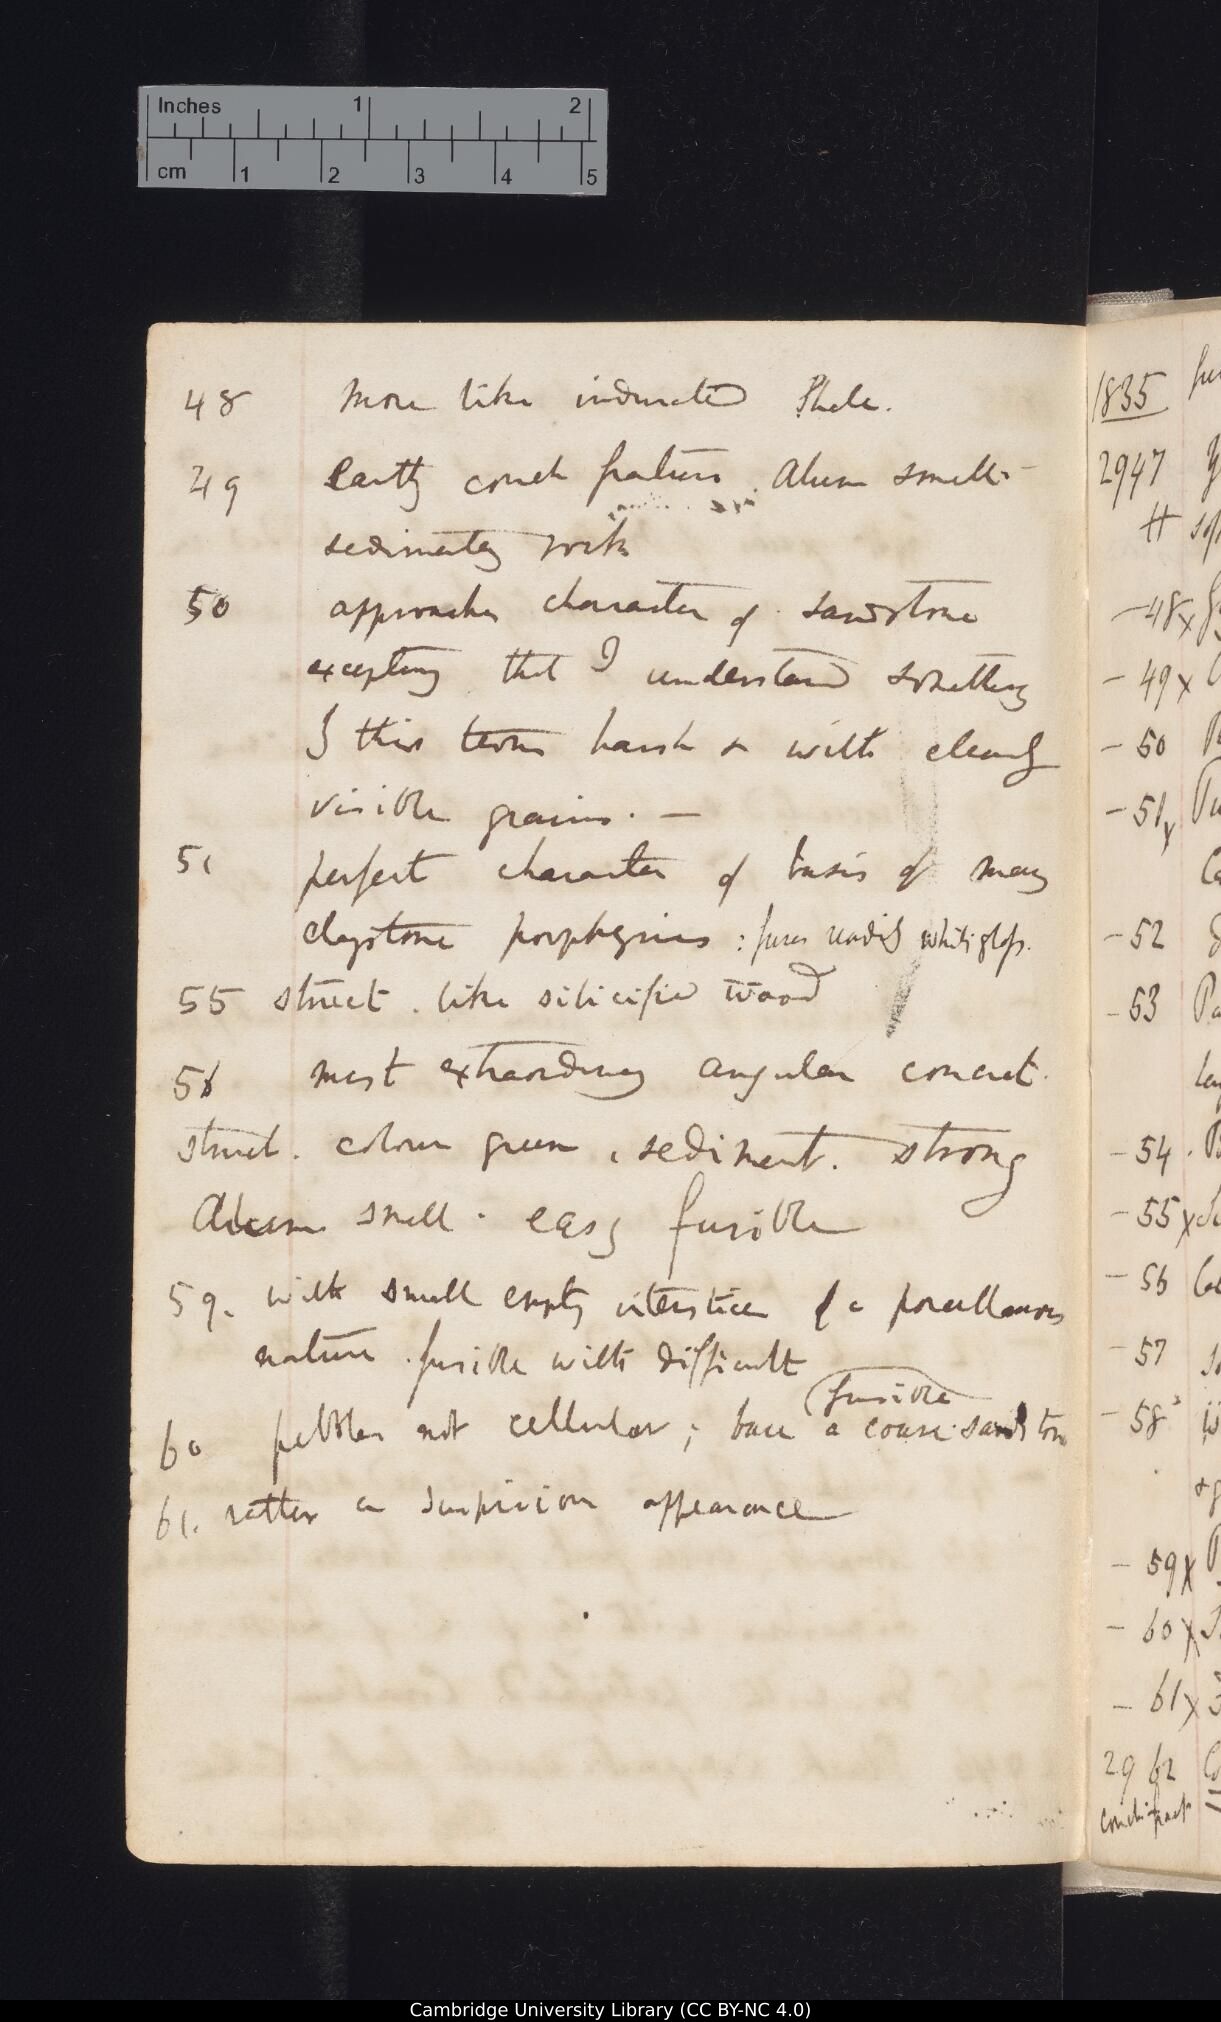 Inches 1 2
cm 1 2 3 4 5
48 more like indurated Shale.
49 Earthy conch fracture. Alum smell-
sedimentary rock
50 approaches character of sandstone
excepting that I understand something
I this term harsh & with clearly
visible grains. —
51 perfect character of basis of many
claystone porphyries: fuses readily white glass.
55 struct. like silicified wood
56 most extraordinary angular concret.
struct. colour green, sediment. strong
Alum smell. easy fusible
59. with small empty interstices of a porcellaneous
nature. fusible with difficult
fusible
60 pebbles not cellular; base a coarse sandstone
61. rather a suspicious appearance
1835
2947
H
-48x
-49x
-50
-51x
-52
-53
-54
-55x
-56
-57
-58
-59x
-60x
-61x
2962
Cambridge University Library (CC BY-NC 4.0)